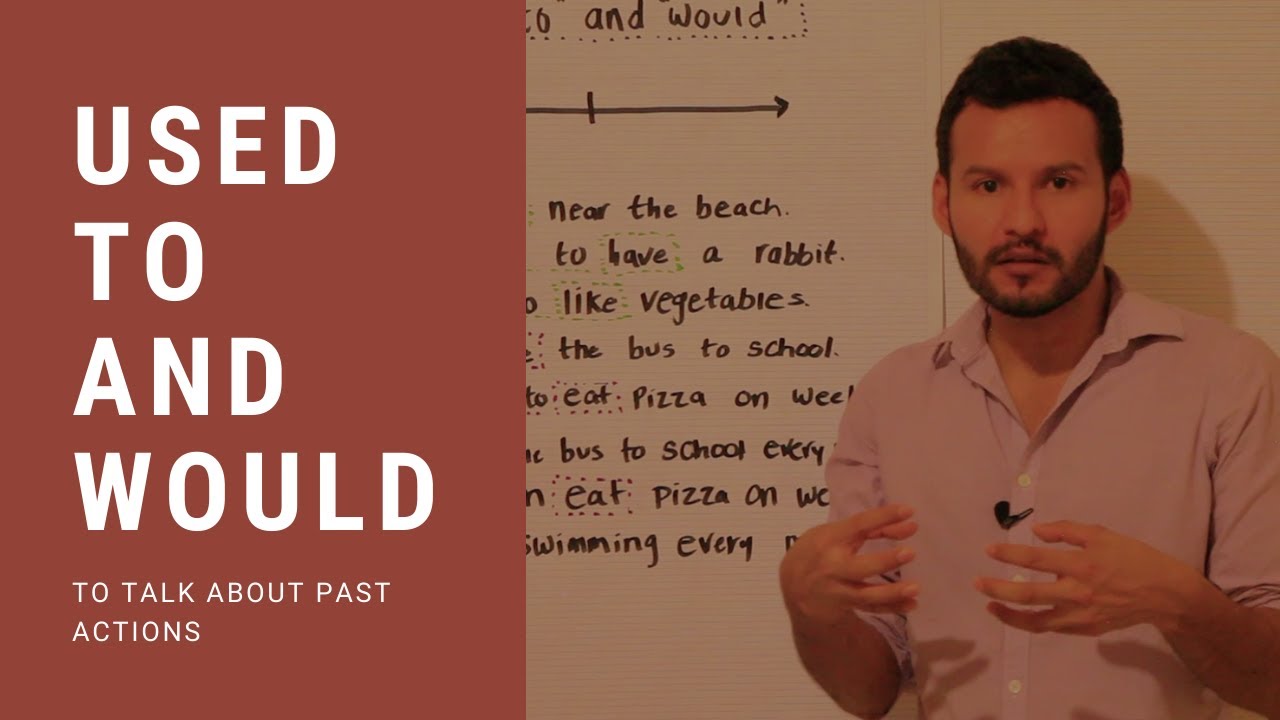 USED
TO
AND
WOULD
TO TALK ABOUT PAST
ACTIONS
to" and "would"
near the beach.
to have a rabbit.
like vegetables.
the bus to school.
to eat pizza on
bus to school every
eat pizza on
swimming every